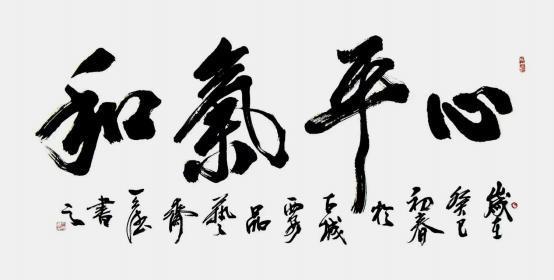 心平氣和
歲在癸巳初春於古城品藝齋書之